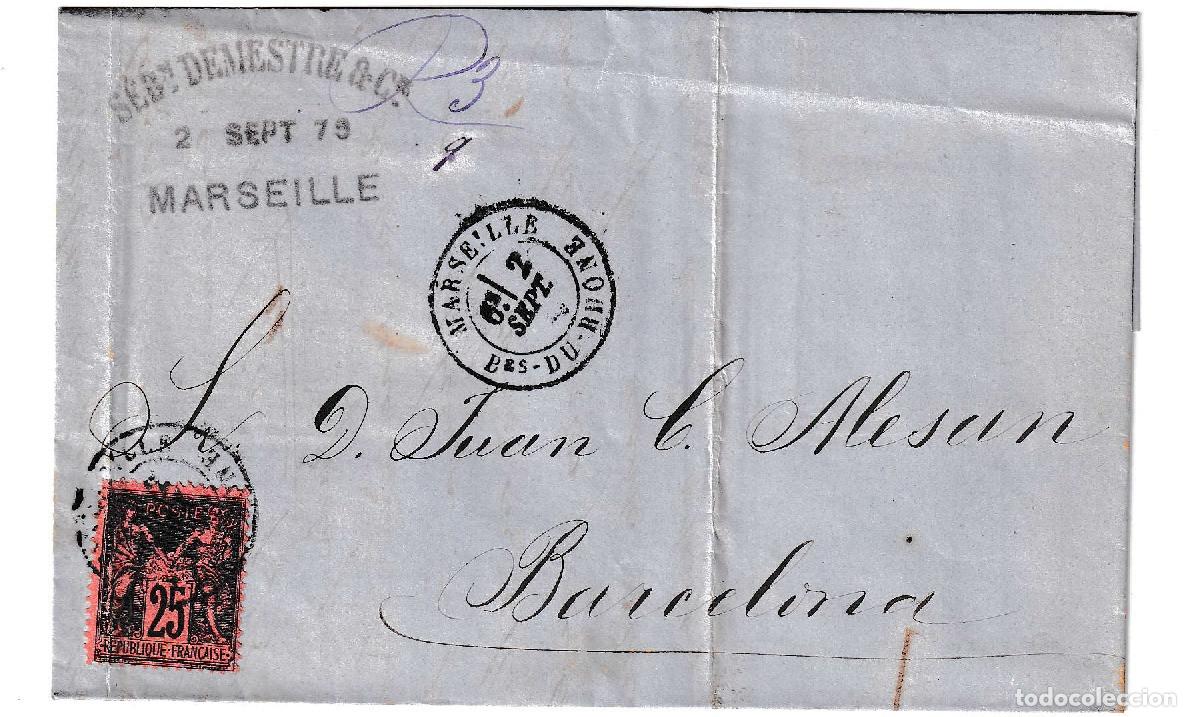 SEBN DEMESTRE & CIE
2 SEPT 79
MARSEILLE
R 3
9
MARSEILLE
6E / 2
SEPT
BES-DU-RHONE
S. D. Juan C. Mesan
Barcelona
POSTES
25
REPUBLIQUE FRANÇAISE
todocoleccion